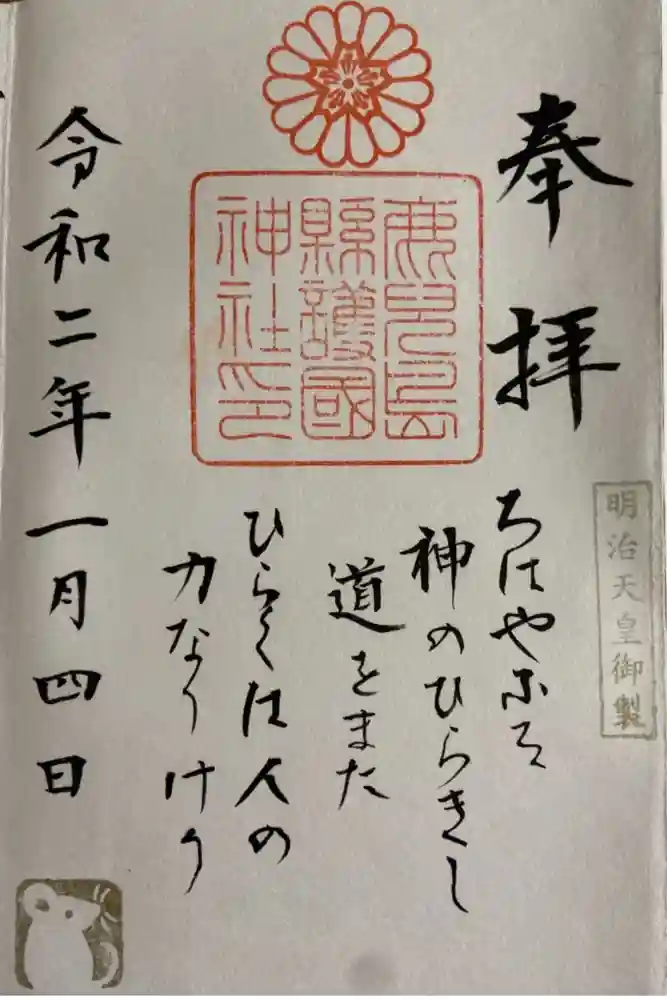 奉拝
明治天皇御製
鹿児島
縣護國
神社印
ちはやふる
神のひらきし
道をまた
ひらくは人の
力なりけり
令和二年一月四日